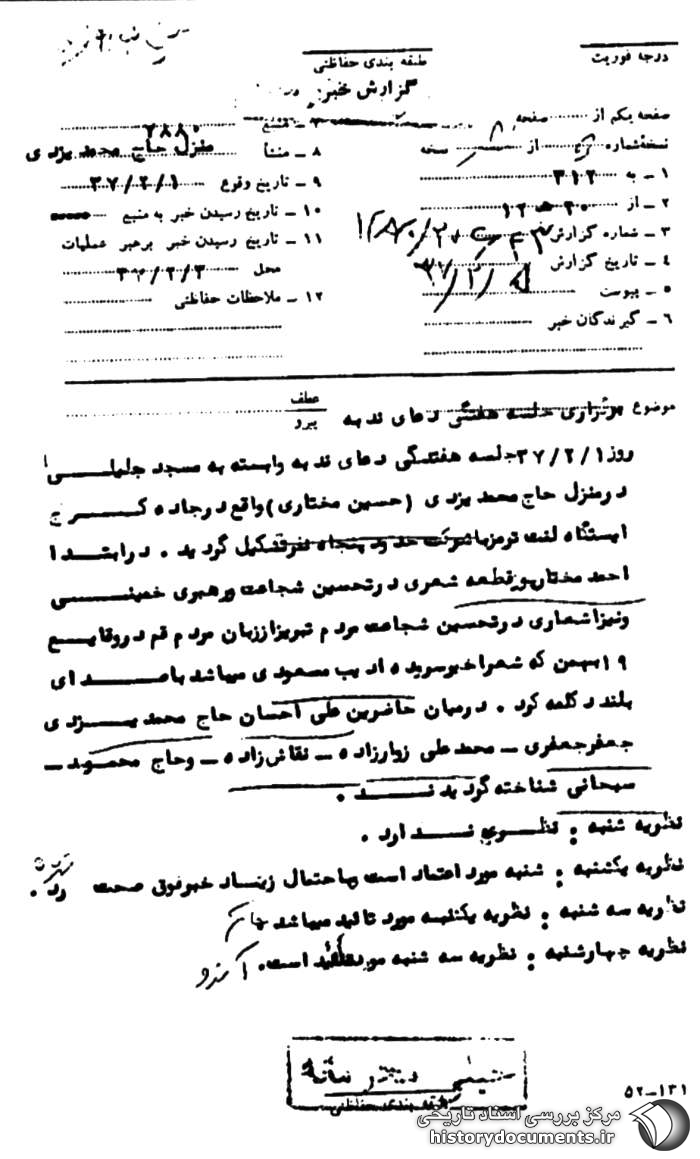 درجه فوریت
طبقه بندی حفاظتی
گزارش خبر
صفحه یکم از ........ صفحه
نسخه شماره ...... از ........ نسخه
۱ ـ به ۳۱۲
۲ ـ از ۲۰ ه ۱۲
۳ ـ شماره گزارش
۴ ـ تاریخ گزارش
۵ ـ پیوست
۶ ـ گیرندگان خبر
۷ ـ منبع ۲۸۸۰
۸ ـ منشأ منزل حاج محمد یزدی
۹ ـ تاریخ وقوع ۳۷/۲/۱
۱۰ ـ تاریخ رسیدن خبر به منبع
۱۱ ـ تاریخ رسیدن خبر برهبر عملیات
محل ۳۷/۲/۳
۱۲ ـ ملاحظات حفاظتی
موضوع برقراری جلسه هفتگی دعای ندبه
عطف
پیرو
روز ۳۷/۲/۱ جلسه هفتگی دعای ندبه وابسته به مسجد جلیلی
درمنزل حاج محمد یزدی (حسین مختاری) واقع درجاده کرج
ایستگاه لنت ترمز باشرکت حدود پنجاه نفر تشکیل گردید . درابتدا
احمد مختارپور قطعه شعری درتحسین شجاعت ورهبری خمینی
ونیزاشعاری درتحسین شجاعت مردم تبریز اززبان مردم قم دروقایع
۱۹ بهمن که شعراخبوسریده ادیب مسعودی میباشد باصدای
بلند دکلمه کرد . درمیان حاضرین علی احسان حاج محمد یزدی
جعفرجعفری ـ محمدعلی زوارزاده ـ نقاش زاده ـ وحاج محمود ـ
سبحانی شناخته گردیدند .
نظریه شنبه : نظری ندارد .
نظریه یکشنبه : شنبه مورد اعتماد است باحتمال زیاد خبرفوق صحت دارد .
نظریه سه شنبه : نظریه یکشنبه مورد تائید میباشد
نظریه چهارشنبه : نظریه سه شنبه مورد تائید است.
طبقه بندی حفاظتی
۵۲-۱۳۱
مرکز بررسی اسناد تاریخی
historydocuments.ir